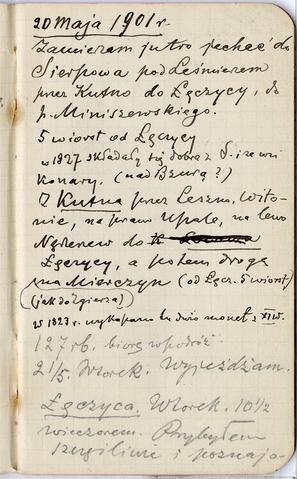 20 Maja 1901 r.
Zamierzam jutro jechać do
Sierpowa pod Leśmierzem
przez Kutno do Łęczycy, do
p. Miniszewskiego.
5 wiorst od Łęczycy
w 1827 składały się dobra z S. i ze wsi
Konary. (nad Bzurą?)
Z Kutna przez Leszno, Wito-
nie, na prawo Upale, na lewo
do
Łęczycy, a potem drogą
na Mierczyn (od Łęcz. 5 wiorst)
(jak do Zgierza)
W 1827 r. wykopano tu dużo monet z XI w.
127 rb. biorę w podróż
21/5. Wtorek. Wyjeżdżam.
Łęczyca. Wtorek. 10 1/2
wieczorem. Przybyłem
szczęśliwie i poznaję